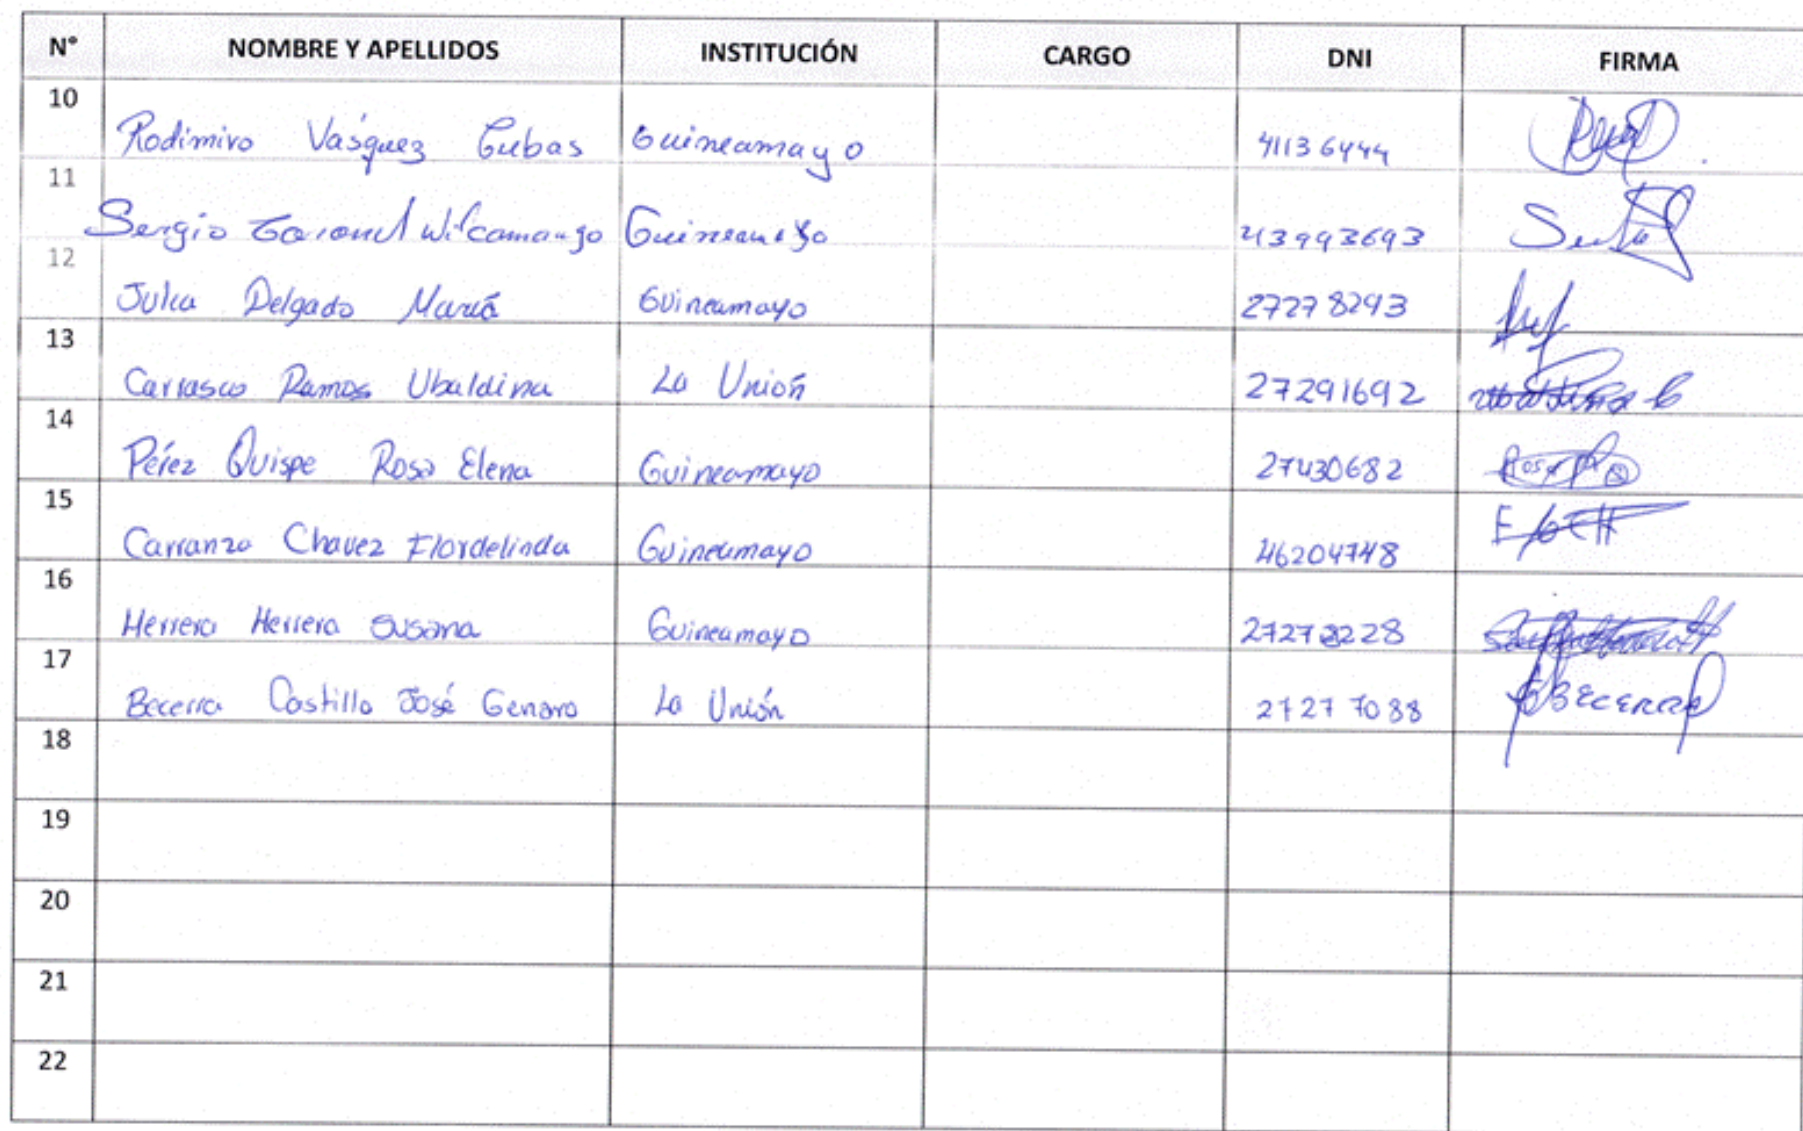 N° NOMBRE Y APELLIDOS INSTITUCIÓN CARGO DNI FIRMA
10 Rodimiro Vasquez Cubas Guineamayo 41136444
11 Sergio Coronel Wilcamango Guineamayo 43993693
12 Julca Delgado María Guineamayo 27278293
13 Carrasco Ramos Ubaldina La Unión 27291692
14 Pérez Quispe Rosa Elena Guineamayo 27430682
15 Carranza Chavez Flordelinda Guineamayo 46204748
16 Herrera Herrera Susana Guineamayo
17 Becerra Castillo José Genaro La Unión 27277088 BECERRA
18
19
20
21
22